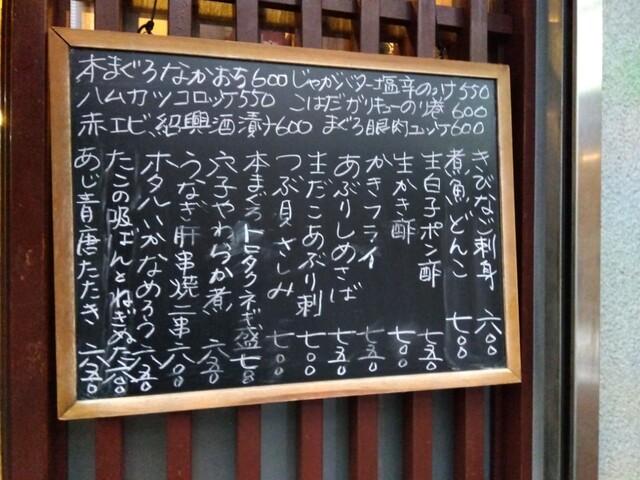 本まぐろなかおち600 じゃがバター塩辛のっけ550
ハムカツコロッケ550 こはだガリキューのり巻 600
赤エビ紹興酒漬け600 まぐろ眼肉ユッケ600
きびなご刺身 六〇〇
煮魚どんこ 七〇〇
生白子ポン酢 七五〇
生かき酢 七〇〇
かきフライ 七五〇
あぶりしめさば 七五〇
生だこあぶり刺 七〇〇
つぶ貝さしみ 七〇〇
本まぐろトロタクネギ盛 七八〇
穴子やわらか煮 六五〇
うなぎ肝串焼二串 六〇〇
ホタルいかなめろう 六五〇
たこの吸ばんとねぎぬた
あじ青唐たたき 六五〇